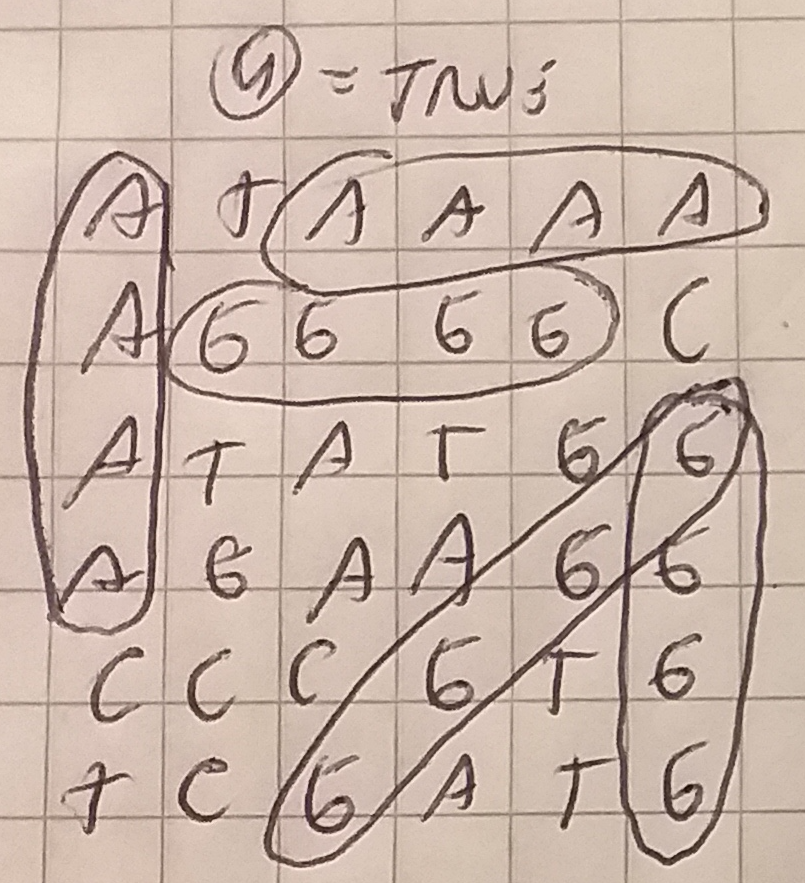 = TRUE
A T A A A A
A G G G G C
A T A T G G
A G A A G G
C C C G T G
T C G A T G